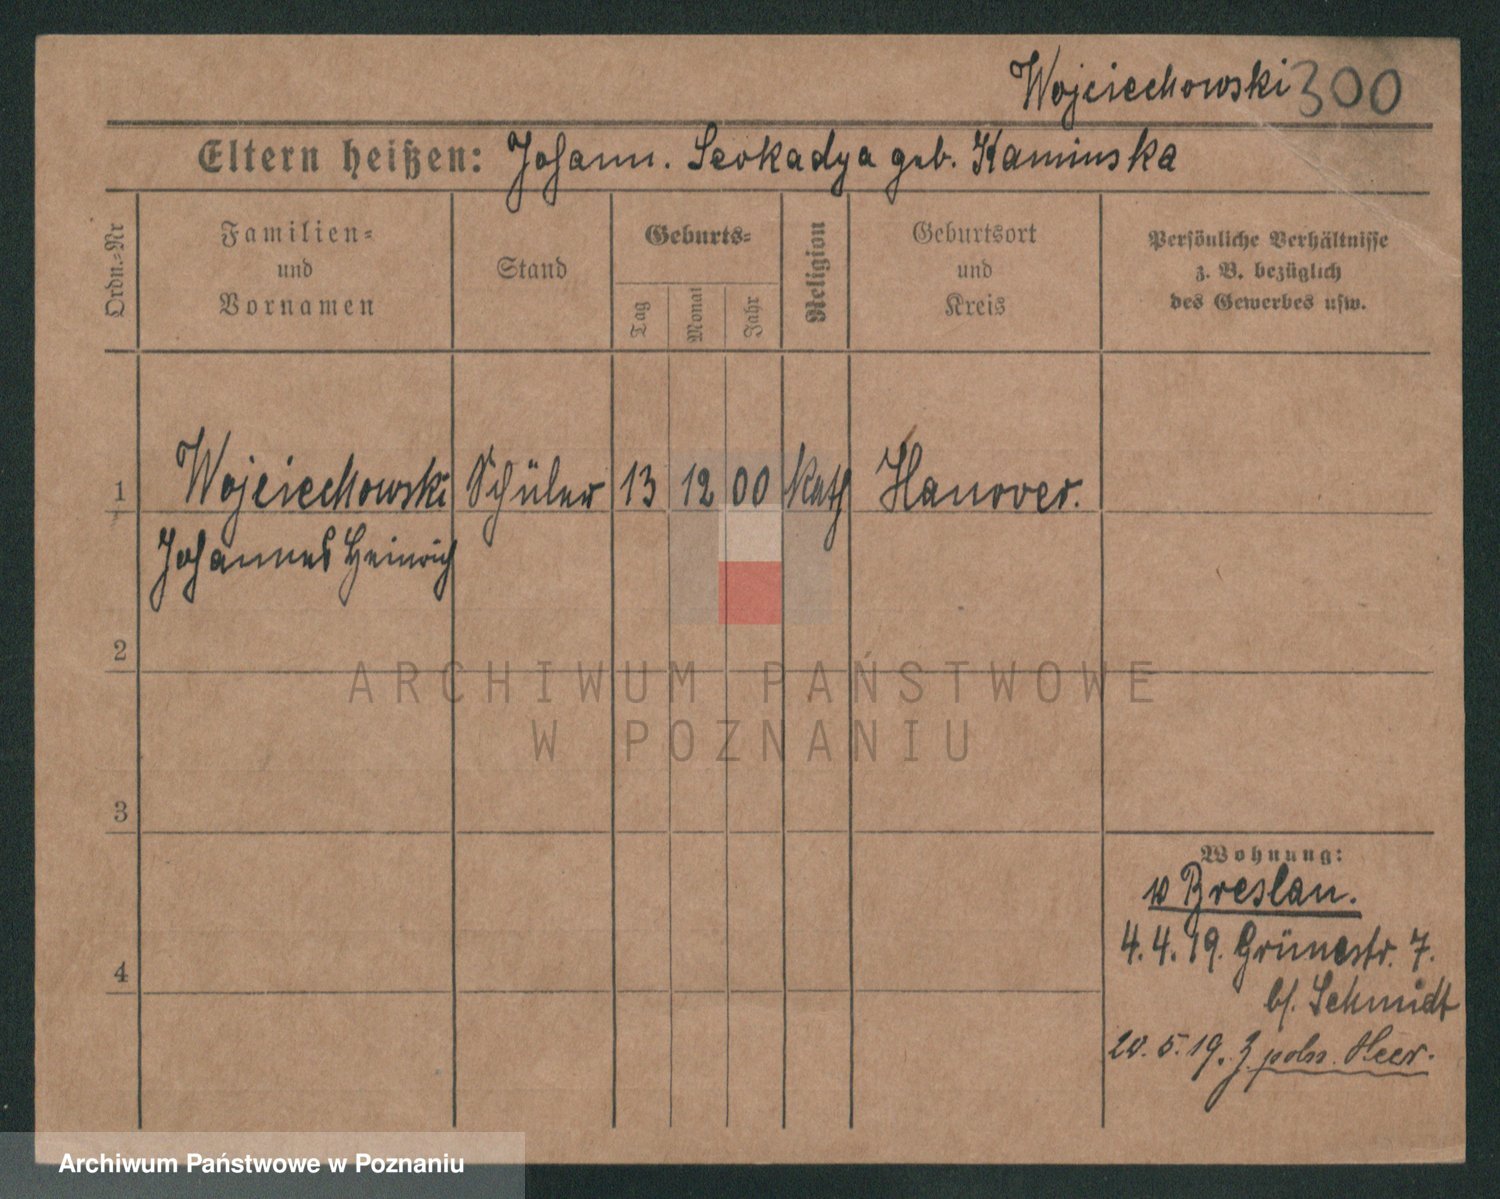 Wojciechowski 300
Eltern heißen: Johann. Leokadya geb. Kaminska
Ordn.-Nr
Familien-
und
Vornamen
Stand
Geburts-
Tag
Monat
Jahr
Religion
Geburtsort
und
Kreis
Persönliche Verhältnisse
z. B. bezüglich
des Gewerbes usw.
1 Wojciechowski Schüler 13 12 00 Kath Hanover.
Johannes Heinrich
2
ARCHIWUM PAŃSTWOWE
W POZNANIU
3
Wohnung:
v Breslau.
4. 4. 19. Grünestr. 7.
b/. Schmidt
4
20. 5. 19. z poln. Heer.
Archiwum Państwowe w Poznaniu